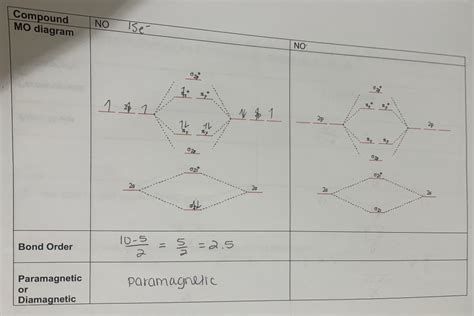 Compound
MO diagram
NO 15e-
NO
σ2p*
πx* πy*
2p 2p
πx πy
σ2p
σ2s*
2s 2s
σ2s
σ2p*
πx* πy*
2p 2p
πx πy
σ2p
σ2s*
2s 2s
σ2s
Bond Order
10-5/2 = 5/2 = 2.5
Paramagnetic
or
Diamagnetic
paramagnetic